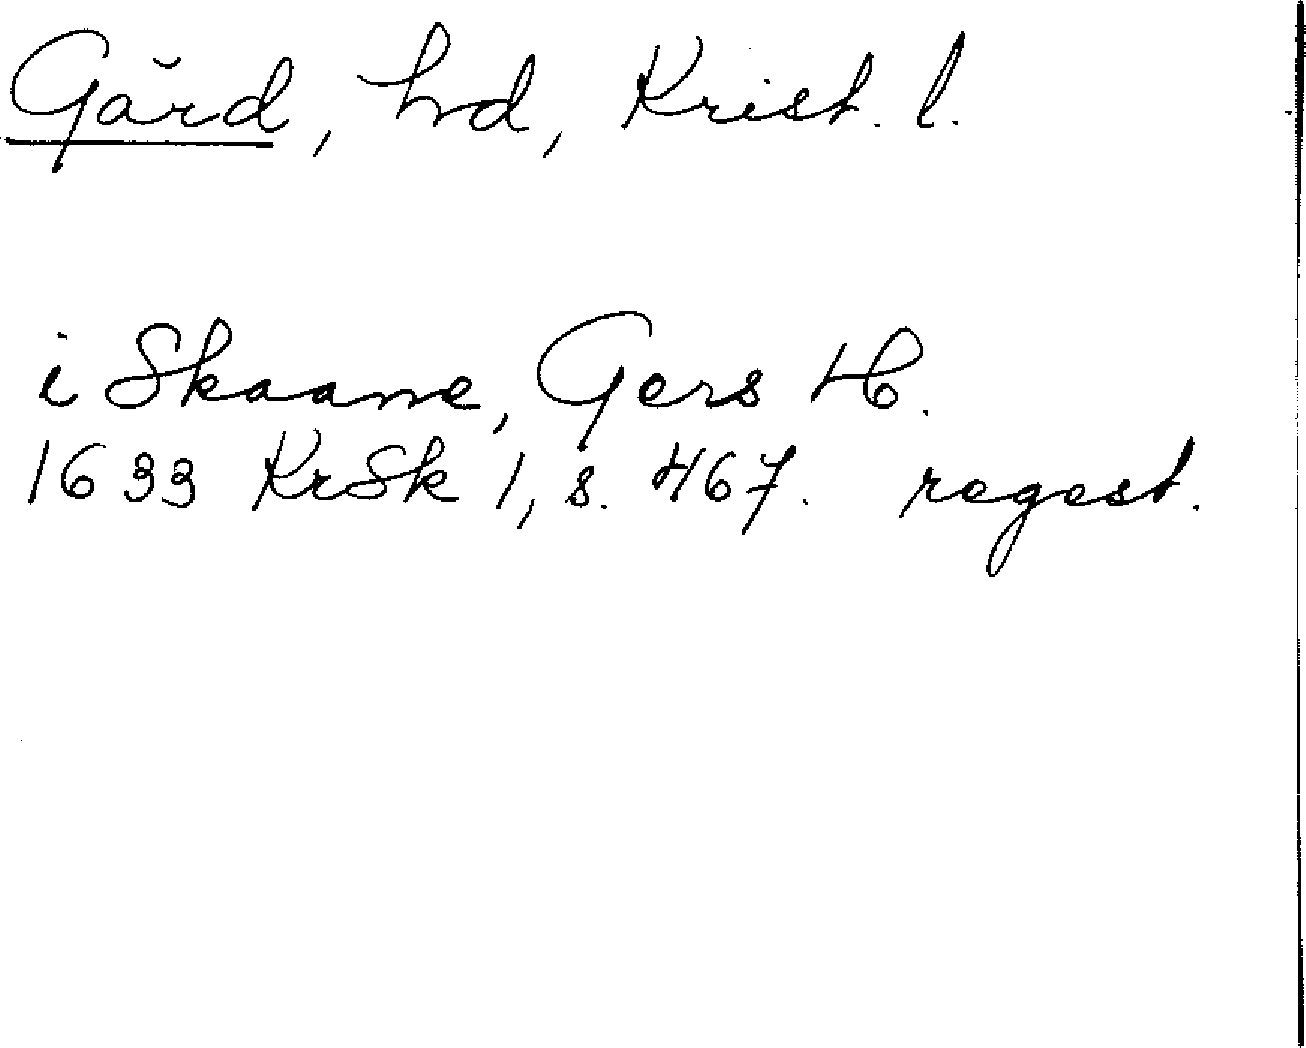 Gärd, hd, Krist. l.
i Skaane, Gers H.
1633 KrSk 1, s. 467. regest.